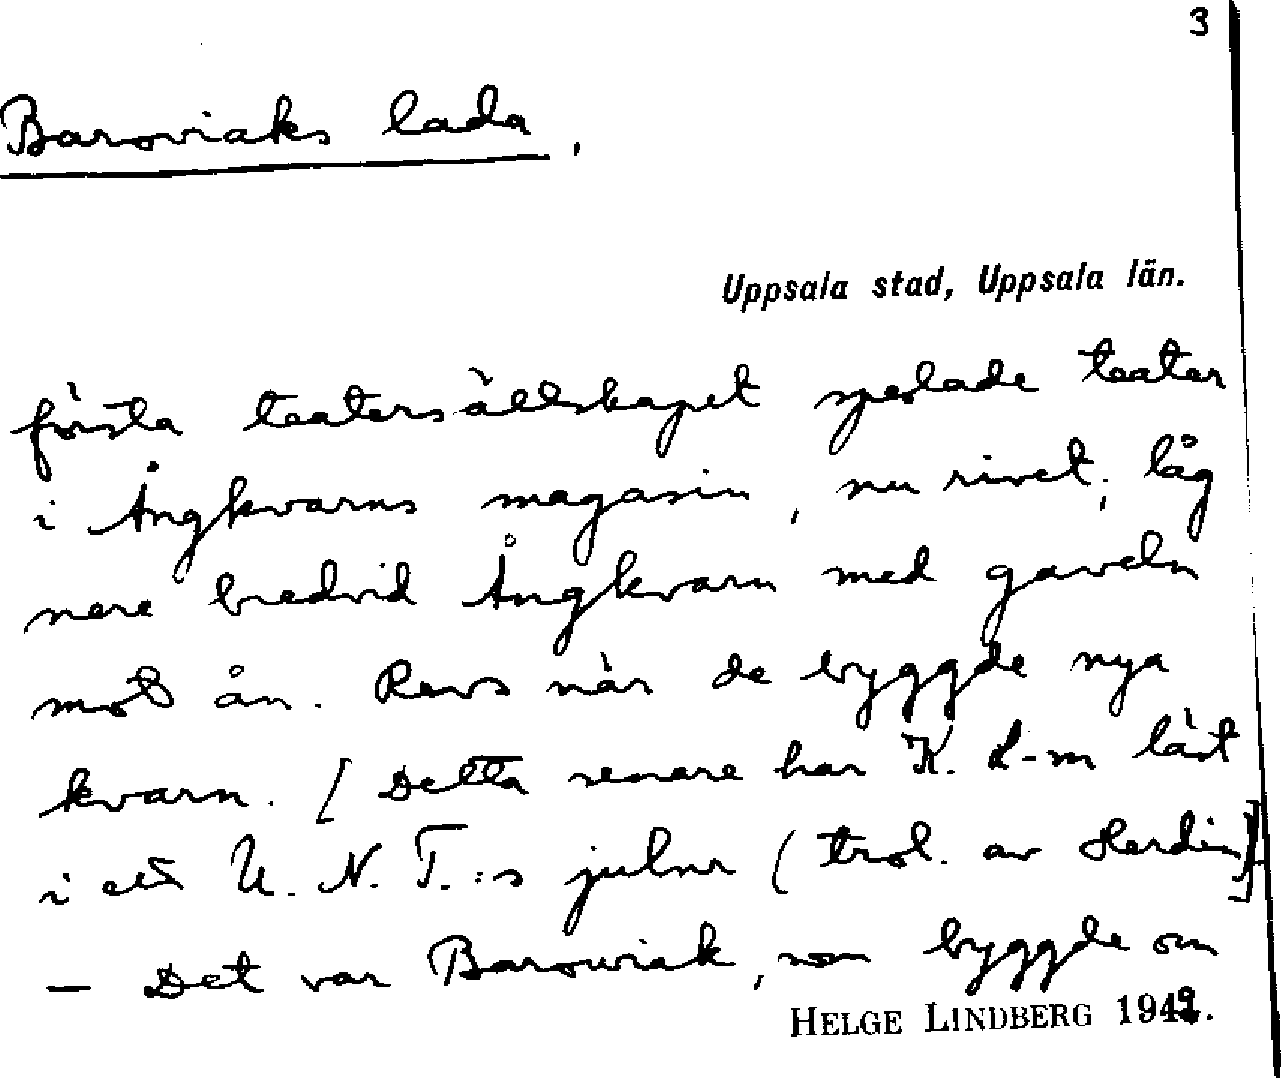 3
Baroviaks lada,
Uppsala stad, Uppsala län.
första teatersällskapet spelade teater
i Ångkvarns magasin, nu rivet; låg
nere bredvid Ångkvarn med gaveln
mot ån. Revs när de byggde nya
kvarn. [Detta senare har K. L-m läst
i ett U. N. T.:s julnr (trol. av Herdin)]
— Det var Barowiak, som byggde om
HELGE LINDBERG 1942.